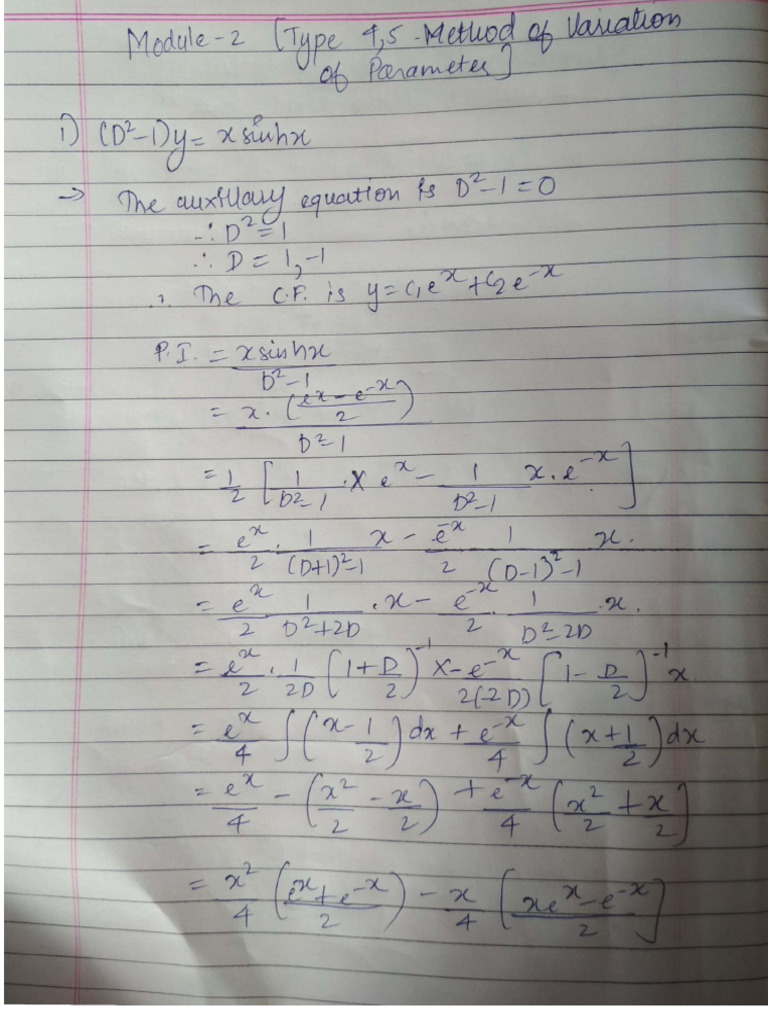 Module-2 [Type 4,5-Method of Variation
of Parameter]
1) (D²-1)y = x sinhx
→ The auxillary equation is D²-1=0
∴ D²=1
∴ D = 1,-1
∴ The C.F. is y=C₁eˣ+C₂e⁻ˣ
P.I. = x sinhx / D²-1
= x·((eˣ-e⁻ˣ)/2) / D²-1
= 1/2 [1/(D²-1) · x eˣ - 1/(D²-1) x·e⁻ˣ]
= eˣ/2 · 1/((D+1)²-1) x - e⁻ˣ/2 1/((D-1)²-1) x.
= eˣ/2 1/(D²+2D) ·x - e⁻ˣ/2 · 1/(D²-2D) ·x.
= eˣ/2 · 1/2D (1+D/2)⁻¹ x - e⁻ˣ/2(-2D) [1-D/2]⁻¹ x
= eˣ/4 ∫(x-1/2)dx + e⁻ˣ/4 ∫(x+1/2)dx
= eˣ/4 - (x²/2 - x/2) + e⁻ˣ/4 (x²/2 + x/2]
= x²/4 ((eˣ+e⁻ˣ)/2) - x/4 [(xeˣ-e⁻ˣ)/2]